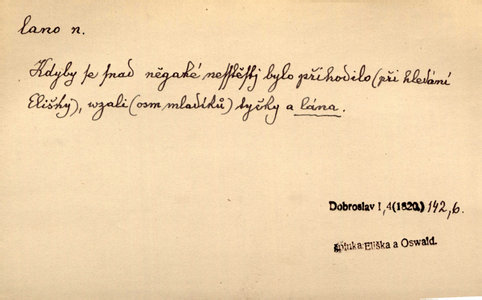 lano n.
Kdyby se snad něgaké nesstěstj bylo přihodilo (při hledání
Elišky), wzali (osm mladíků) tyčky a lána.
Dobroslav I, 4 (1820,) 142, 6.
Eliška a Oswald.